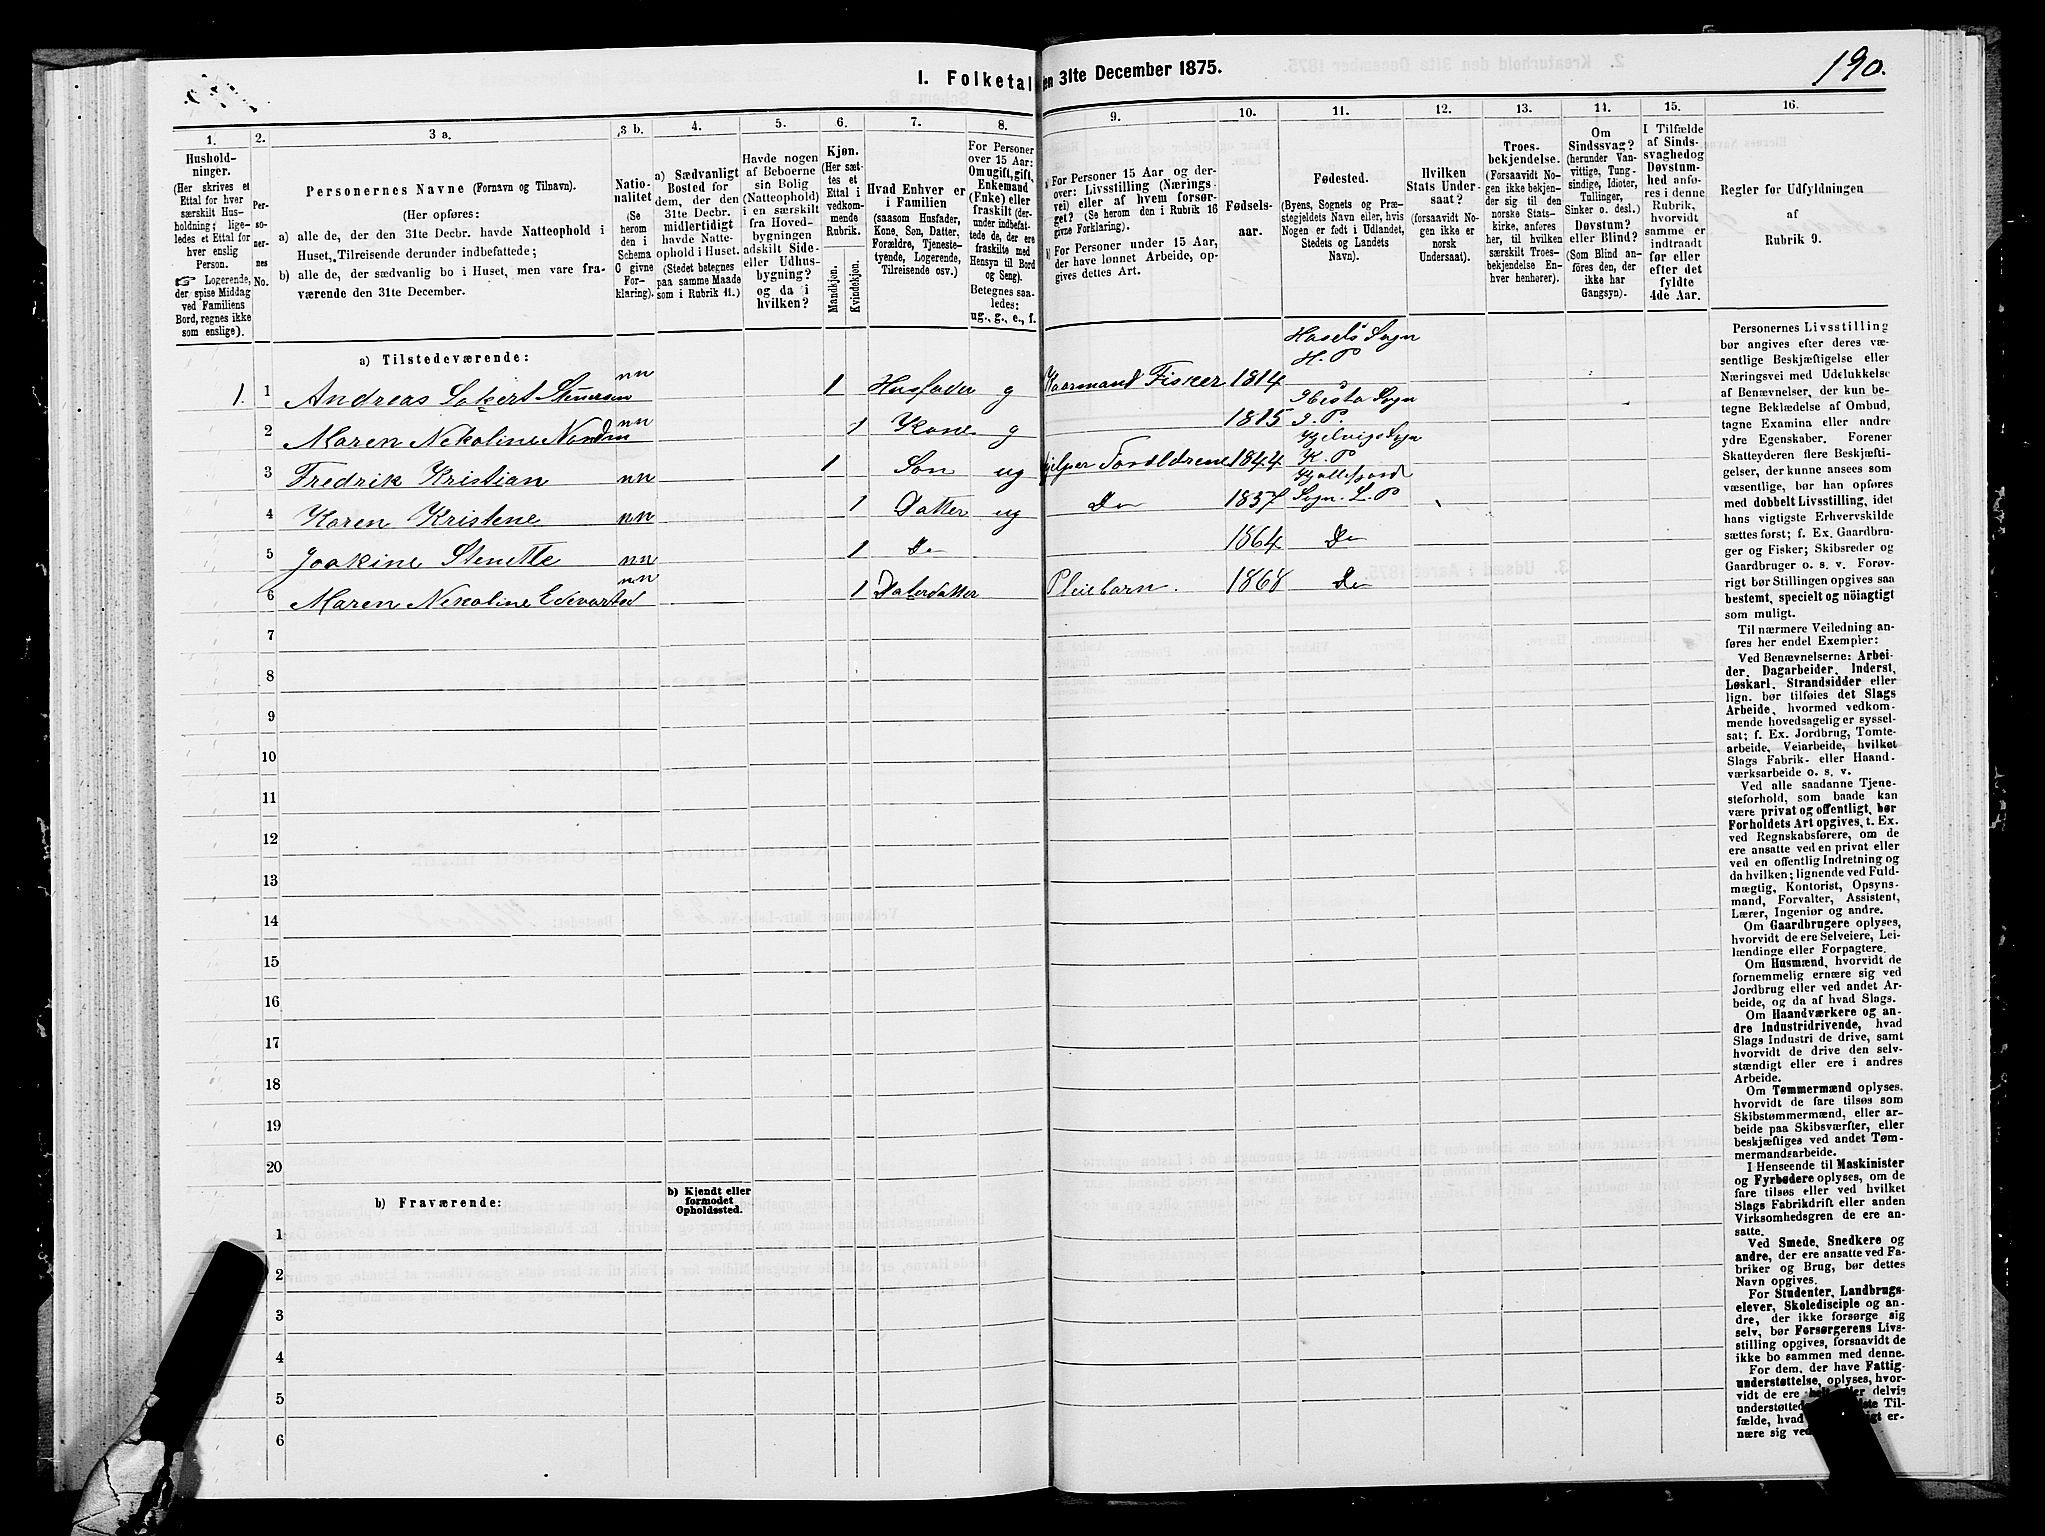 190.
I. Folketal
en 31te December 1875.
1.
2.
3 a.
3 b.
4.
5.
6.
7.
8.
9.
10.
11.
12.
13.
14.
15.
16.
Hushold-
ninger.
(Her skrives et
Ettal for hver
særskilt Hus-
holdning; lige-
ledes et Ettal for
hver enslig
Person.
☞ Logerende,
der spise Middag
ved Familiens
Bord, regnes ikke
som enslige).
Per-
so-
ner-
nes
No.
Personernes Navne (Fornavn og Tilnavn).
(Her opføres:
a) alle de, der den 31te Decbr. havde Natteophold i
Huset, Tilreisende derunder indbefattede;
b) alle de, der sædvanlig bo i Huset, men vare fra-
værende den 31te December.
Natio-
nalitet
(Se
herom
den i
Schema
C givne
For-
klaring).
a) Sædvanligt
Bosted for
dem, der den
31te Decbr.
midlertidigt
havde Natte-
ophold i Huset.
(Stedet betegnes
paa samme Maade
som i Rubrik 11.)
Havde nogen
af Beboerne
sin Bolig
(Natteophold)
i en særskilt
fra Hoved-
bygningen
adskilt Side-
eller Udhus-
bygning?
og da i
hvilken?
Kjøn.
(Her sæt-
tes et
Ettal i
vedkom-
mende
Rubrik.
Mandkjøn.
Kvindekjøn.
Hvad Enhver er
i Familien
(saasom Husfader,
Kone, Søn, Datter,
Forældre, Tjeneste-
tyende, Logerende,
Tilreisende osv.)
For Personer
over 15 Aar:
Om ugift, gift,
Enkemand
(Enke) eller
fraskilt (der-
under indbefat-
tede de, der ere
fraskilte med
Hensyn til Bord
og Seng).
Betegnes saa-
ledes:
ug., g., e., f.
a) For Personer 15 Aar og der-
over: Livsstilling (Nærings-
vei) eller af hvem forsør-
get? (Se herom i Rubrik 16
givne Forklaring).
b) For Personer under 15 Aar,
der have lønnet Arbeide, op-
gives dettes Art.
Fødsels-
aar.
Fødested.
(Byens, Sognets og Præ-
stegjeldets Navn eller, hvis
Nogen er født i Udlandet,
Stedets og Landets
Navn).
Hvilken
Stats Under-
saat?
(forsaavidt No-
gen ikke er
norsk
Undersaat).
Troes-
bekjendelse.
(Forsaavidt No-
gen ikke bekjen-
der sig til den
norske Stats-
kirke, anføres
her, til hvilken
særskilt Troes-
bekjendelse En-
hver henhører).
Om
Sindssvag?
(herunder Van-
vittige, Tung-
sindige, Idioter,
Tullinger,
Sinker o. desl.)
Døvstum?
eller Blind?
(Som Blind an-
føres den, der
ikke har
Gangsyn).
I Tilfælde
af Sinds-
svaghed og
Døvstum-
hed anfø-
res i denne
Rubrik,
hvorvidt
samme er
indtraadt
før eller
efter det
fyldte
4de Aar.
Regler for Udfyldningen
af
Rubrik 9.
a) Tilstedeværende:
1. 1 Andreas Sakert Stenersen nn 1 Husfader g Huusmand Fisker 1814 Hasels Sogn H. P
2 Maren Nekoline nn 1 Kone g 1815 Ibesta Sogn I. P.
3 Fredrik Kristian nn 1 Søn ug hjelper Foreldrene 1844 Kjelvigs Sogn K. P
4 Karen Kristene nn 1 Datter ug Do 1857 Kjøllefjord Sogn. L. P
5 Joakine Stenette nn 1 Do 1864 Do
6 Maren Nekoline nn 1 Daterdatter Pleiebarn. 1868 Do
7
8
9
10
11
12
13
14
15
16
17
18
19
20
b) Fraværende:
b) Kjendt eller
formodet
Opholdssted.
1
2
3
4
5
6
Personernes Livsstilling
bør angives efter deres væ-
sentlige Beskjæftigelse eller
Næringsvei med Udelukkelse
af Benævnelser, der kun be-
tegne Beklædelse af Ombud,
tagne Examina eller andre
ydre Egenskaber. Forener
Skatteyderen flere Beskjæfti-
gelser, der kunne ansees som
væsentlige, bør han opføres
med dobbelt Livsstilling, idet
hans vigtigste Erhvervskilde
sættes først; f. Ex. Gaardbru-
ger og Fisker; Skibsreder og
Gaardbruger o. s. v. Forøv-
rigt bør Stillingen opgives saa
bestemt, specielt og nöiagtigt
som muligt.
Til nærmere Veiledning an-
føres her endel Exempler:
Ved Benævnelserne: Arbei-
der, Dagarbeider, Inderst,
Løskarl, Strandsidder eller
lign. bør tilføies det Slags
Arbeide, hvormed vedkom-
mende hovedsagelig er syssel-
sat; f. Ex. Jordbrug, Tomte-
arbeide, Veiarbeide, hvilket
Slags Fabrik- eller Haand-
værksarbeide o. s. v.
Ved alle saadanne Tjene-
steforhold, som baade kan
være privat og offentligt, bør
Forholdets Art opgives, t. Ex.
ved Regnskabsførere, om de
ere ansatte ved en privat eller
ved en offentlig Indretning og
da hvilken; lignende ved Fuld-
mægtig, Kontorist, Opsyns-
mand, Forvalter, Assistent,
Lærer, Ingeniør og andre.
Om Gaardbrugere oplyses,
hvorvidt de ere Selveiere, Lei-
lændinge eller Forpagtere.
Om Husmænd, hvorvidt de
fornemmelig ernære sig ved
Jordbrug eller ved andet Ar-
beide, og da af hvad Slags.
Om Haandværkere og an-
dre Industridrivende, hvad
Slags Industri de drive, samt
hvorvidt de drive den selv-
stændigt eller ere i andres
Arbeide.
Om Tømmermænd oplyses,
hvorvidt de fare tilsøs som
Skibstømmermænd, eller ar-
beide paa Skibsværfter, eller
beskjæftiges ved andet Tøm-
mermandsarbeide.
I Henseende til Maskinister
og Fyrbødere oplyses, om de
fare tilsøs eller ved hvilket
Slags Fabrikdrift eller anden
Virksomhedsgren de ere an-
satte.
Ved Smede, Snedkere og
andre, der ere ansatte ved Fa-
briker og Brug, bør dettes
Navn opgives.
For Studenter, Landbrugs-
elever, Skoledisciple og an-
dre, der ikke forsørge sig
selv, bør Forsørgerens Livs-
stilling opgives, forsaavidt de
ikke bo sammen med denne.
For dem, der have Fattig-
understøttelse, oplyses, hvor-
vidt de ere helt eller delvis
understøttede
fælde, hvad
nære sig ved